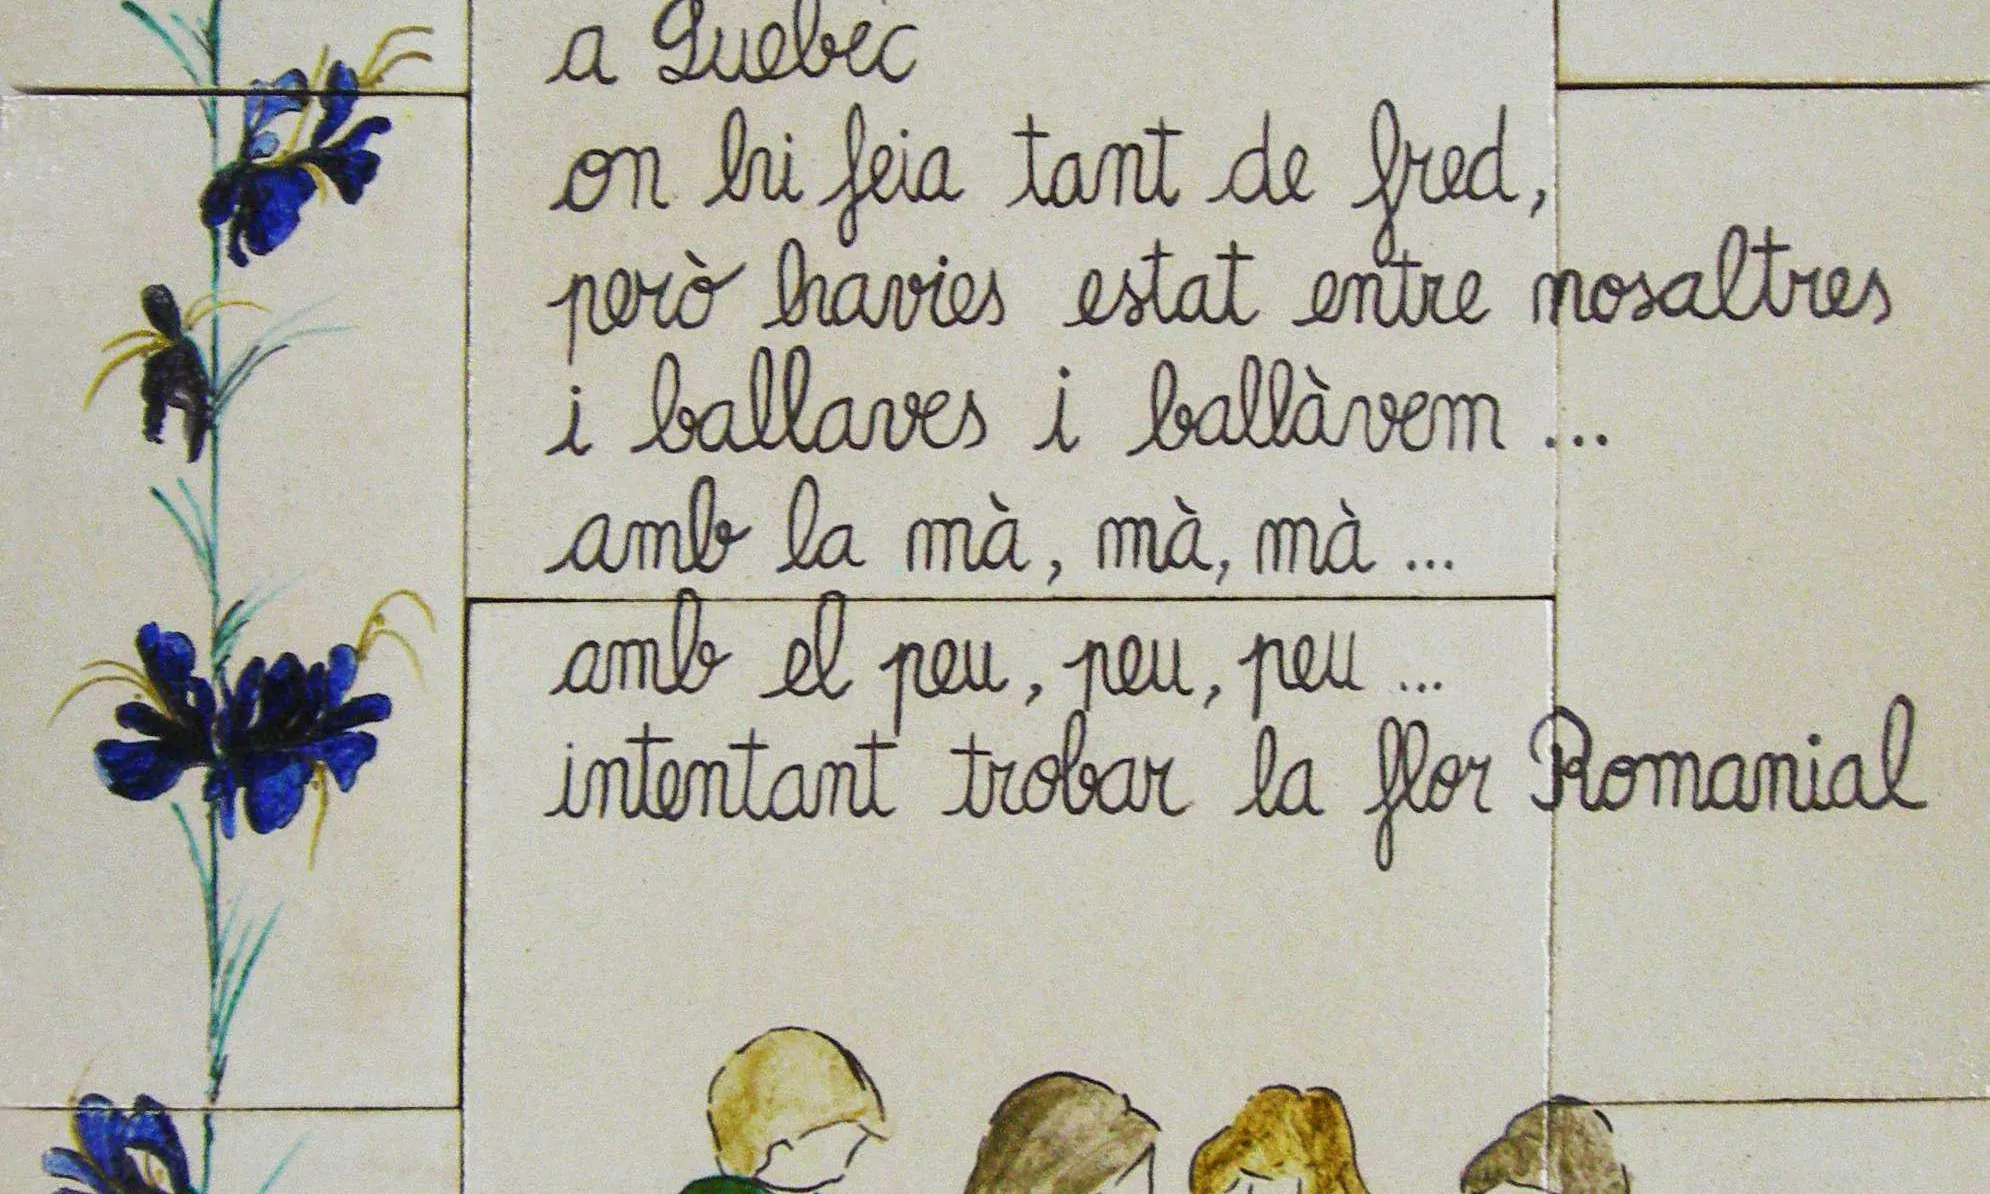 a Quebec
on hi feia tant de fred,
però havies estat entre nosaltres
i ballaves i ballàvem ...
amb la mà, mà, mà ...
amb el peu, peu, peu ...
intentant trobar la flor Romanial